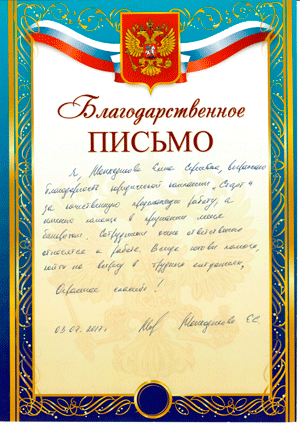 Благодарственное
ПИСЬМО
Я, Елена Сергеевна, выражаю
благодарность юридической компании „Старт“
за качественную проделанную работу, а
именно помощь в признании меня
банкротом. Сотрудники очень ответственно
относятся к работе. Всегда готовы помочь,
войти в трудную ситуацию.
Огромное спасибо!
03.07.2017г. Е.С.